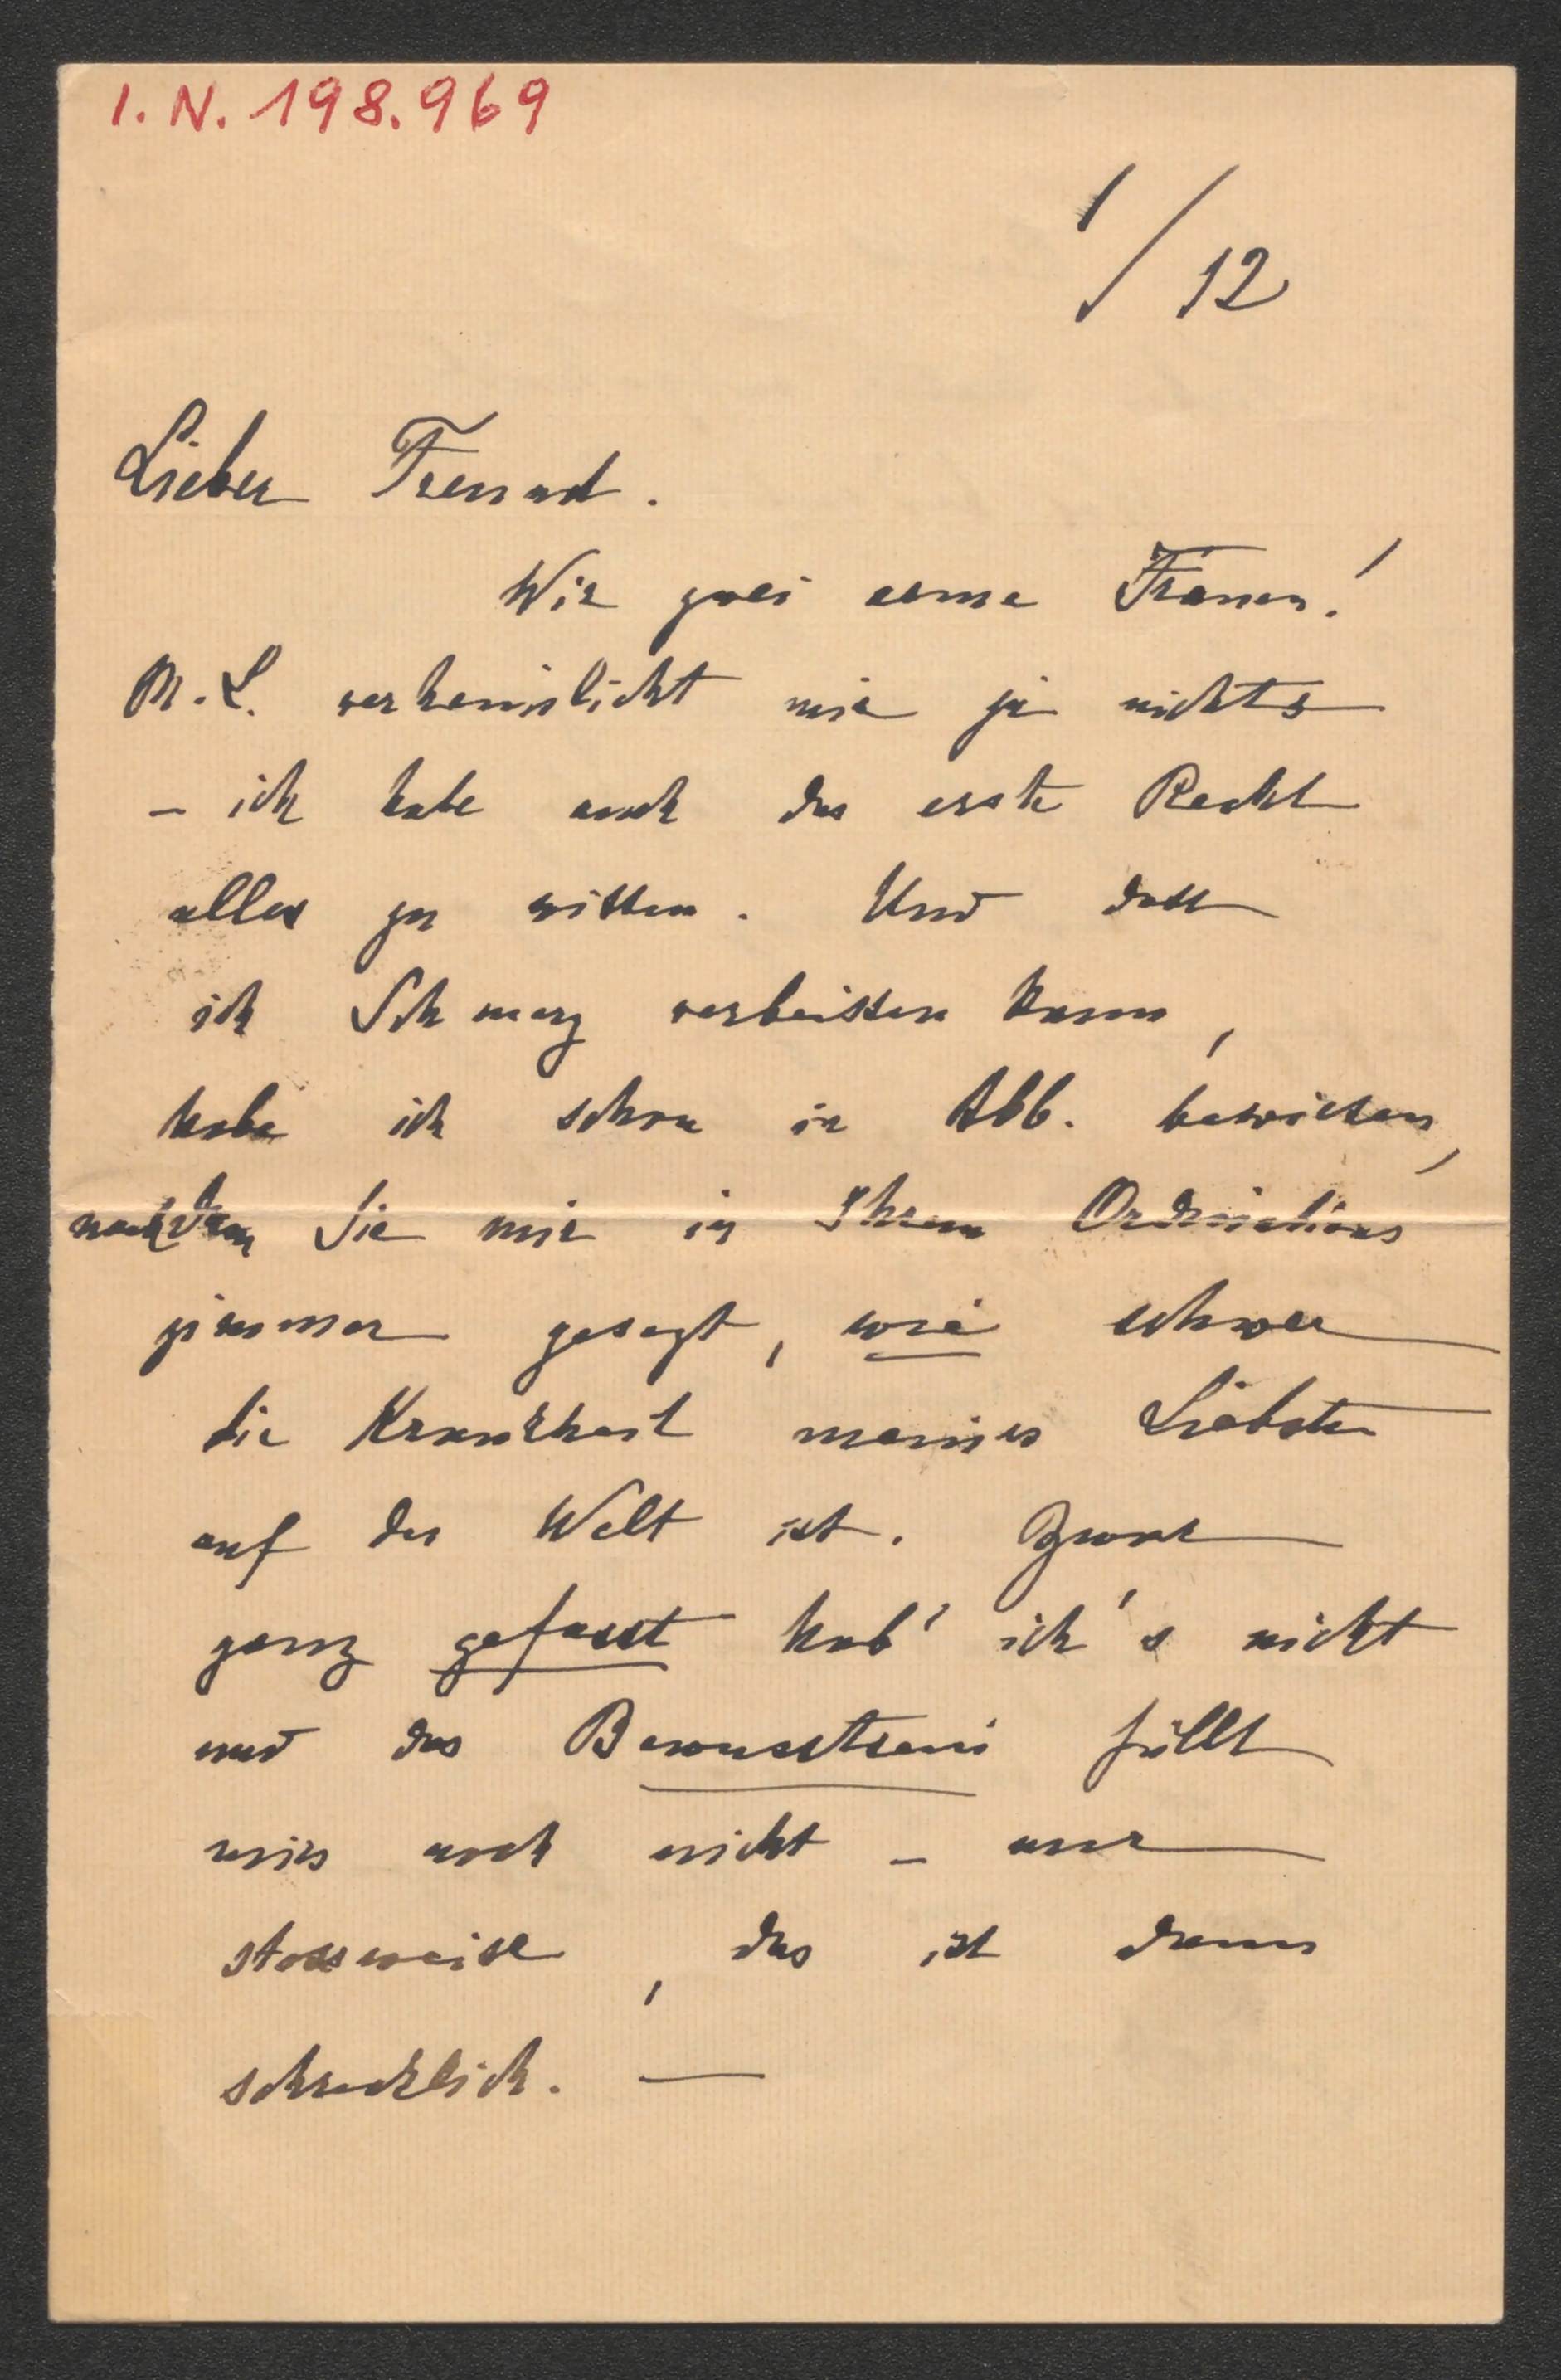 I. N. 198.969
1/12
Lieber Freund.
Wir zwei arme Frauen!
M. L. verheimlicht mir ja nichts
– ich habe auch das erste Recht
alles zu wissen. Und dass
ich Schmerz verbeissen kann,
habe ich schon in Abb. bewiesen,
nachdem Sie mir in Ihrem Ordinations
zimmer gesagt, wie schwer
die Krankheit meines Liebsten
auf der Welt ist. Zwar
ganz gefasst hab' ich's nicht
und das Bewusstsein füllt
mich noch nicht – nur
stossweise, das ist dann
schrecklich. —